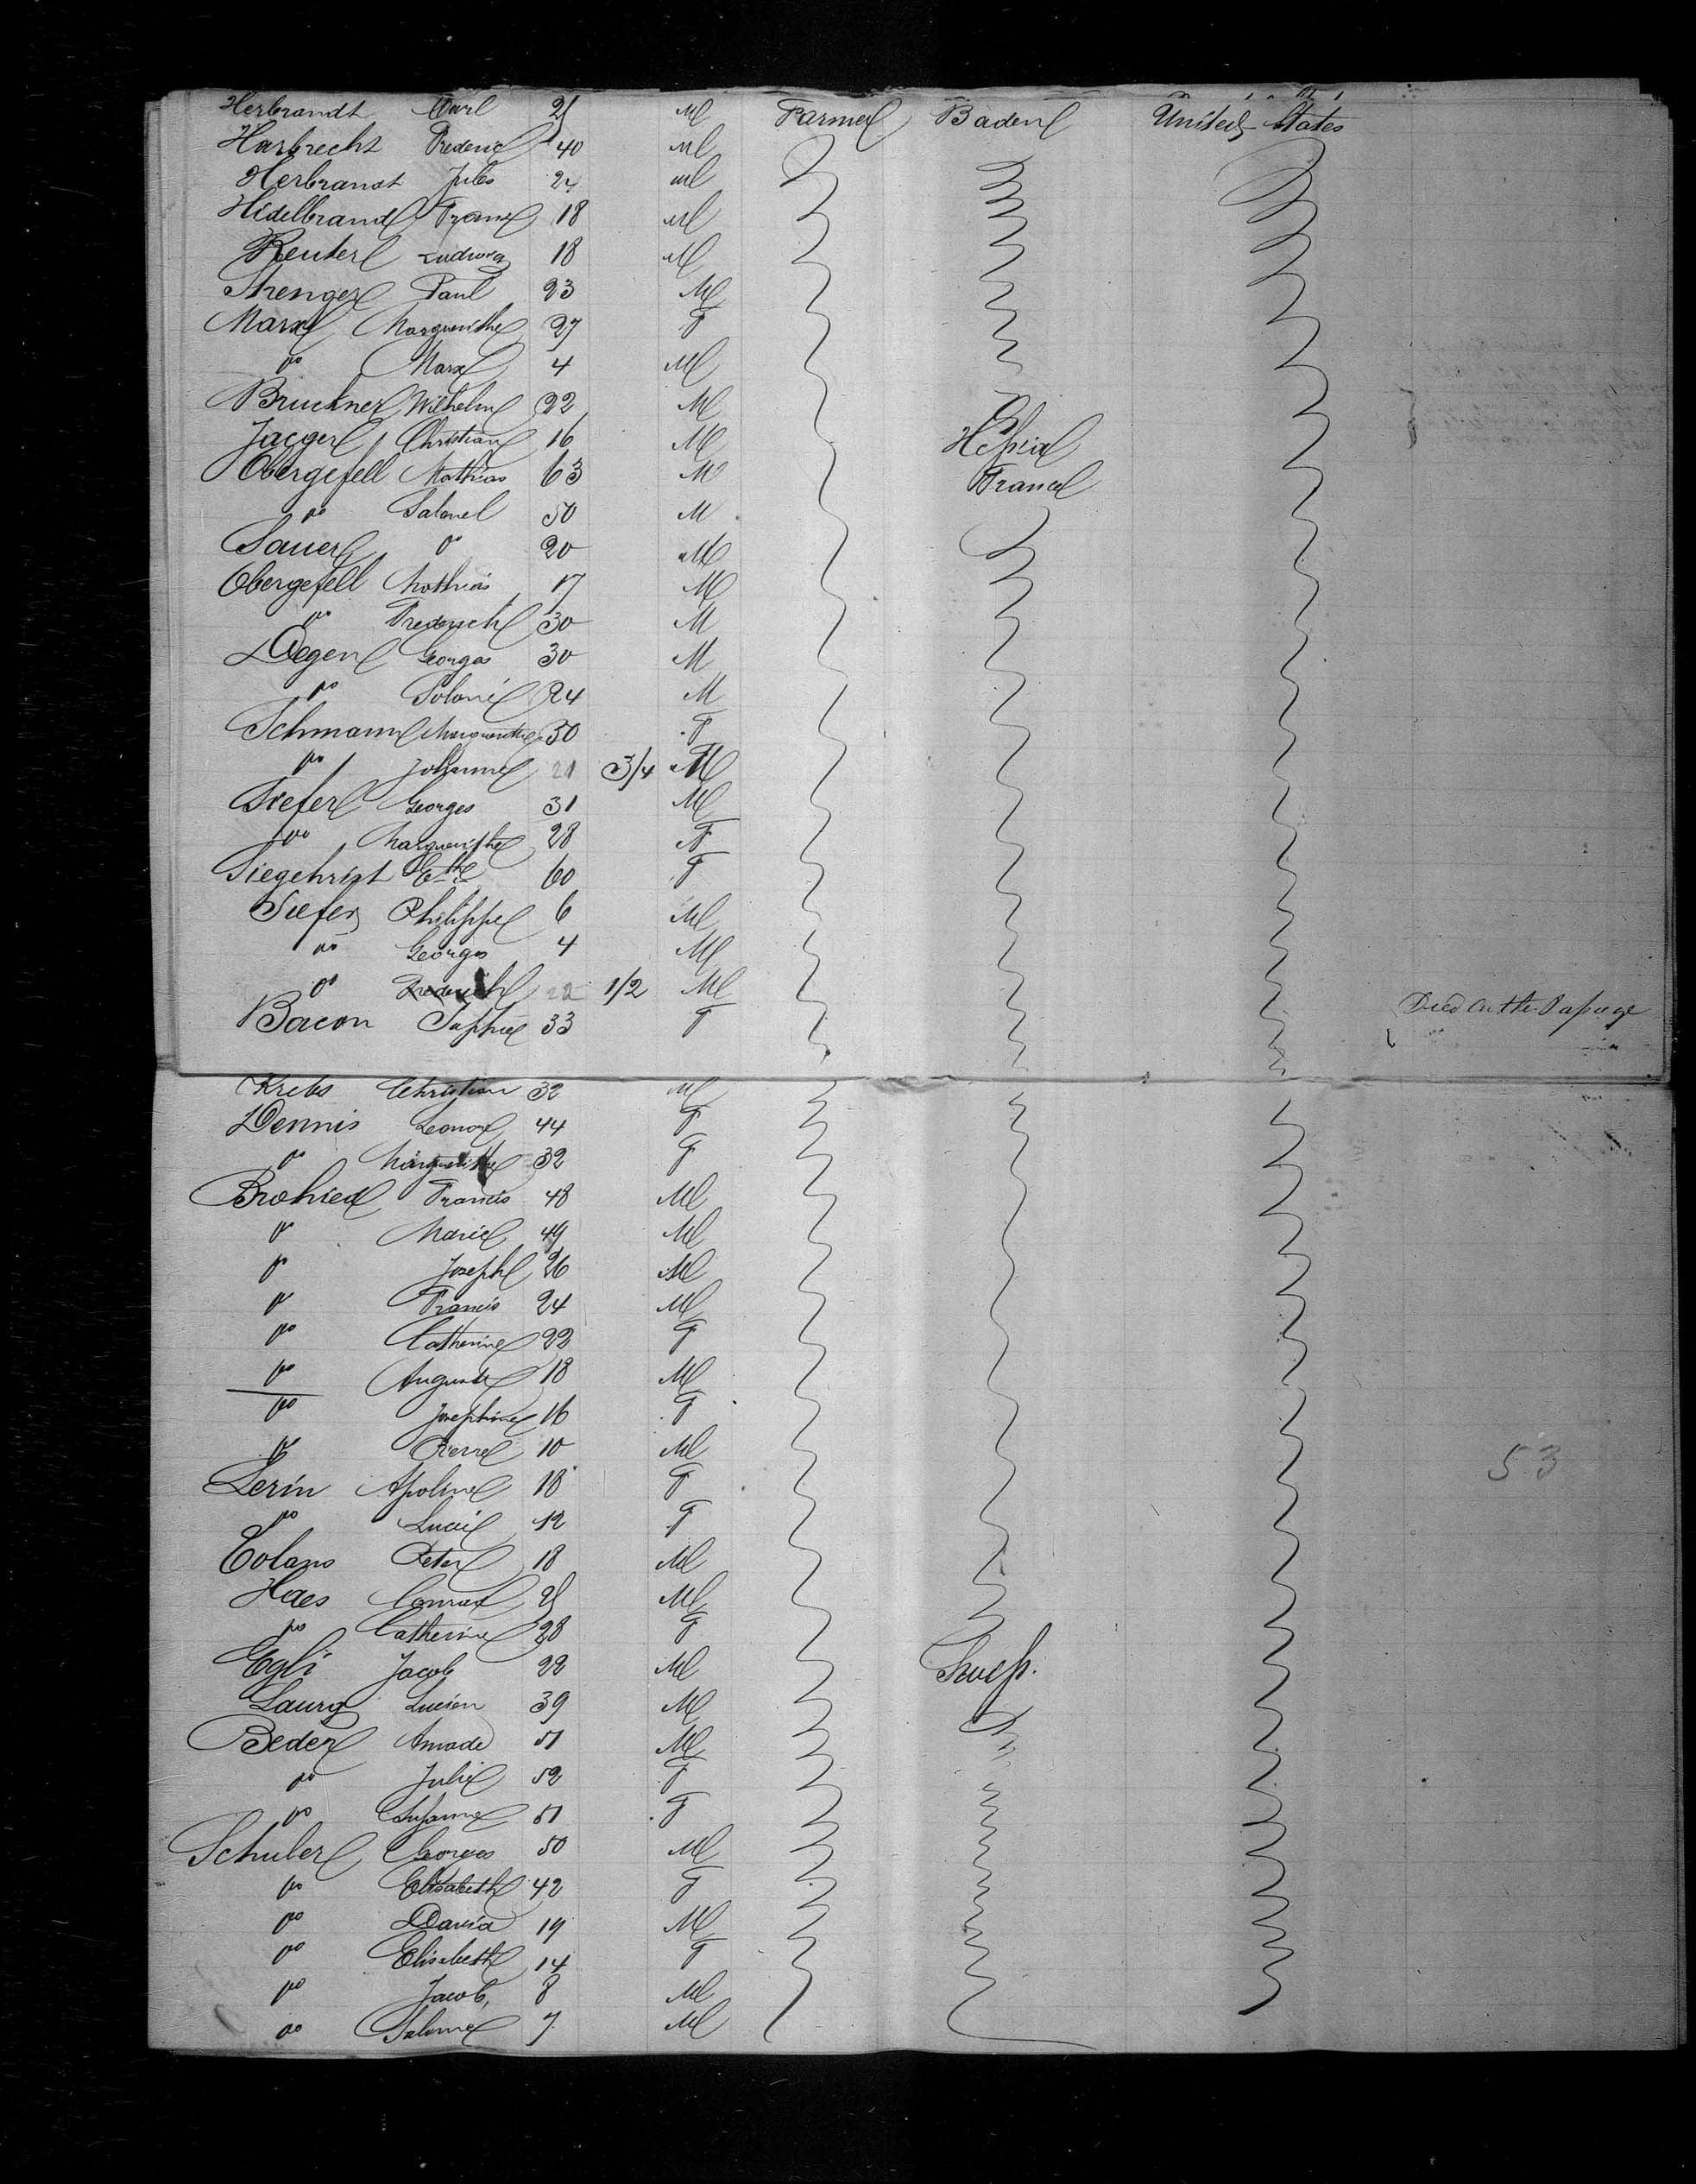 Herbrandt Carl 21 M Farmer Baden United States
Harbrecht Frederic 40 M
Herbrandt Jules 24 M
Hidelbrand Franz 18 M
Reuter Ludwig 18 M
Strenger Paul 23 M
Marx Marguerithe 27 F
do Marx 4 M
Bruckner Wilhelm 22 M
Jaeger Christian 16 M Hessia
Obergefell Mathias 63 M France
do Salomel 50 M
Sauer do 20 M
Obergefell Mathias 17 M
do Frederich 30 M
Degen Georges 30 M
do Solomé 24 M
Schmann Marguerithe 30 F
do Johanne 21 3/4 M
Siefer Georges 31 M
do Marguerithe 28 F
Siegehrist Cthe 60 F
Siefer Philippe 6 M
do Georges 4 M
do Frederich 22 1/2 M Died on the Passage
Bacon Sophie 33 F
Krebs Christian 32 M
Dennis Leonor 44 F
do Marguerithe 32 F
Brohied Francis 48 M
do Marie 49 M
do Joseph 26 M
do Francis 24 M
do Catherine 22 F
do Auguste 18 M
do Josephine 16 F
do Pierre 10 M
53
Lerin Apoline 18 F
do Lucie 12 F
Colans Peter 18 M
Haes Conrad M
do Catherine 28 F
Egli Jacob 22 M Swess.
Laurg Lucien 39 M
Beder Amade 51 M
do Julie 52 F
do Susanne 51 F
Schuber Georges 50 M
do Elisabeth 42 F
do David 19 M
do Elisabeth 14 F
do Jacob 8 M
do Salome 7 M